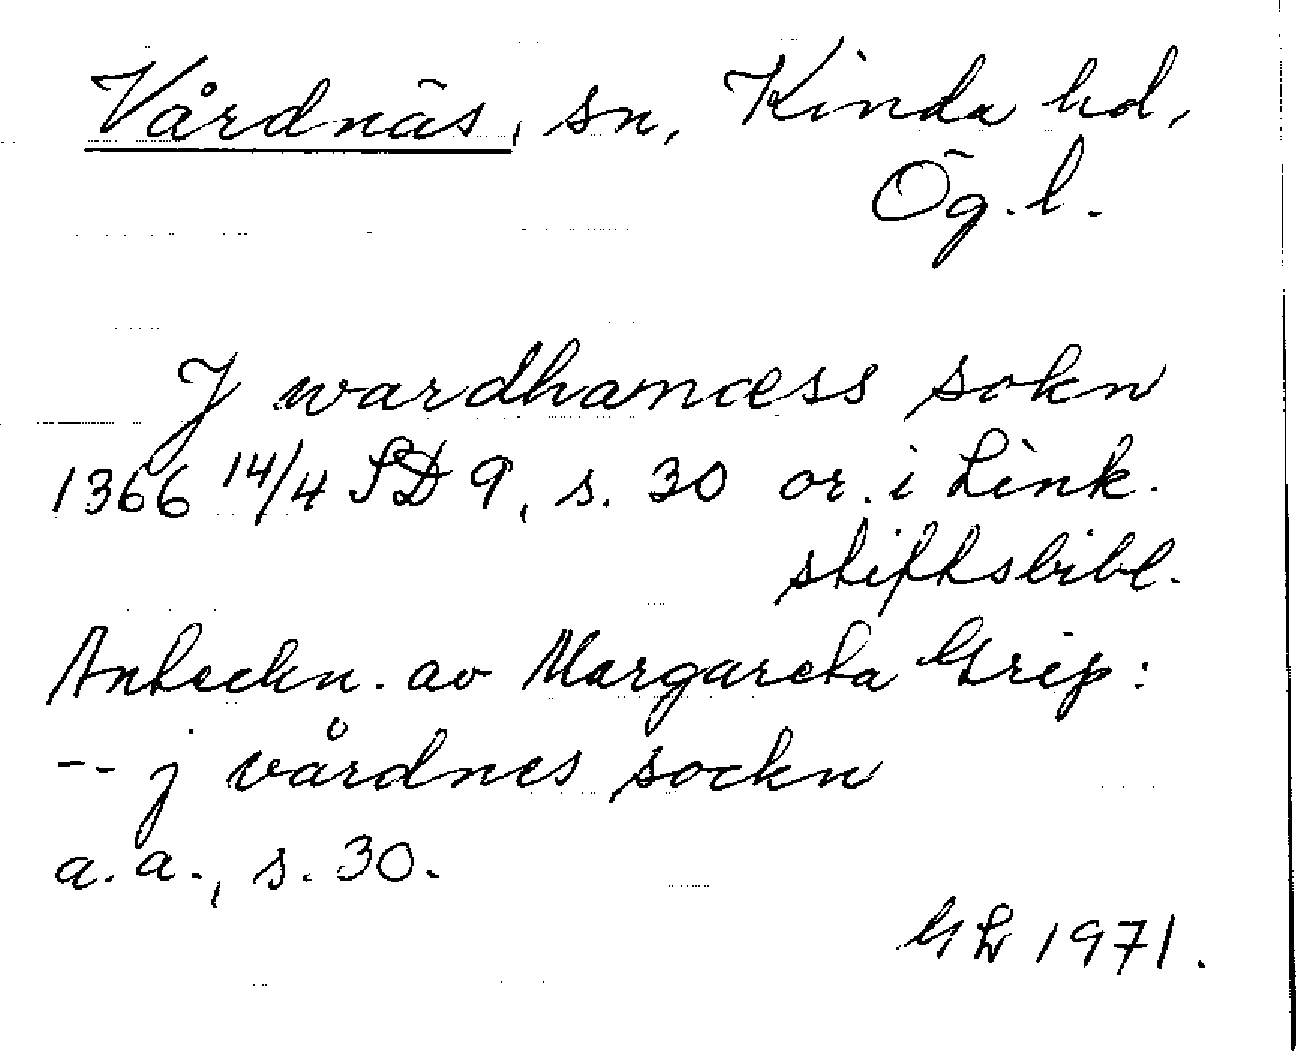 Vårdnäs, sn, Kinda hd,
Ög. l.
J wardhanæss sokn
1366 14/4 SD 9, s. 30 or. i Link.
stiftsbibl.
Anteckn. av Margareta Grip:
-- j vårdnes sockn
a. a., s. 30.
GL 1971.